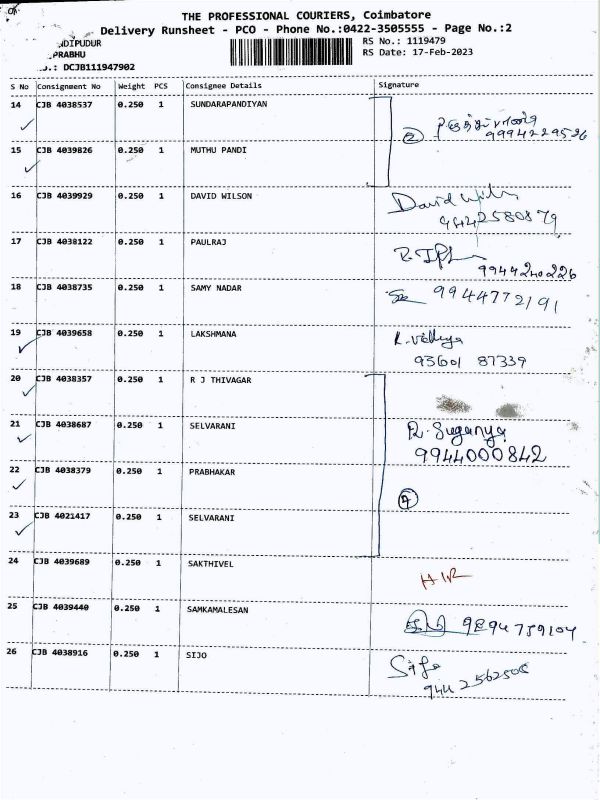 THE PROFESSIONAL COURIERS, Coimbatore
Delivery Runsheet - PCO - Phone No.:0422-3505555 - Page No.:2
NDIPUDUR RS No.: 1119479
PRABHU RS Date: 17-Feb-2023
.: DCJB111947902
S No Consignment No Weight PCS Consignee Details Signature
14 CJB 4038537 0.250 1 SUNDARAPANDIYAN
9994229526
15 CJB 4039826 0.250 1 MUTHU PANDI
16 CJB 4039929 0.250 1 DAVID WILSON David
9442580879
17 CJB 4038122 0.250 1 PAULRAJ
9944240226
18 CJB 4038735 0.250 1 SAMY NADAR 9944772191
19 CJB 4039658 0.250 1 LAKSHMANA R. Vidhya
93601 87339
20 CJB 4038357 0.250 1 R J THIVAGAR
21 CJB 4038687 0.250 1 SELVARANI R. Suganya
9944000842
22 CJB 4038379 0.250 1 PRABHAKAR
23 CJB 4021417 0.250 1 SELVARANI
24 CJB 4039689 0.250 1 SAKTHIVEL
25 CJB 4039440 0.250 1 SAMKAMALESAN 9894759104
26 CJB 4038916 0.250 1 SIJO Sijo